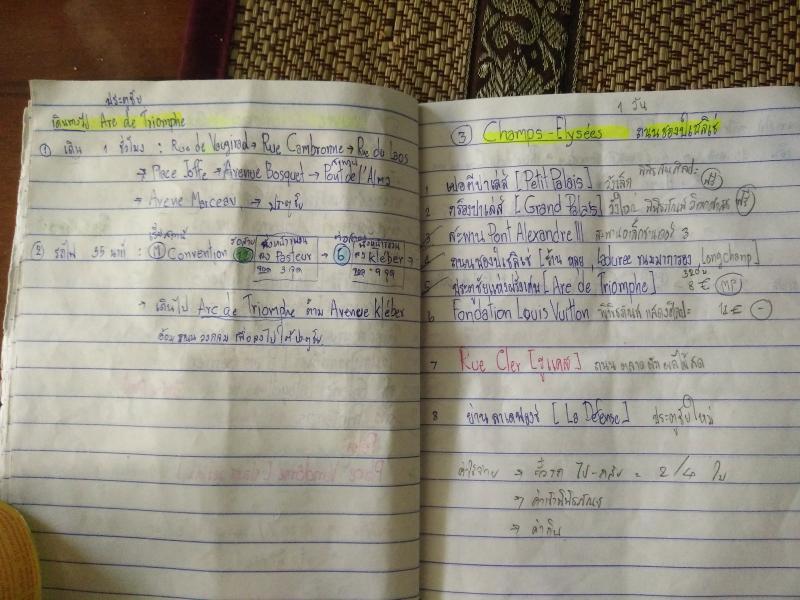 ประตูชัย
เดินทางไป Arc de Triomphe
① เดิน 1 ชั่วโมง : Rue de Vaugirad → Rue Cambronne → Rue du Laos
สะพาน
→ Place Joffe → Avenue Bosquet → Pont de l'Alma
→ Avenue Marceau → ประตูชัย
② รถไฟ 35 นาที : M Convention 12 ลง Pasteur → 6 ลง Kléber
→ เดินไป Arc de Triomphe ตาม Avenue Kléber
1 วัน
③ Champs-Elysées ถนนชองป์เซลิเซ่
1 เปอตีปาเล่ส์ [Petit Palais] วังเล็ก พิพิธภัณศิลปะ ฟรี
2 กร็องปาเล่ส์ [Grand Palais] วังใหญ่ พิพิธภัณฑ์วิทยาศาสตร์ ฟรี
3 สะพาน Pont Alexandre III สะพานอเล็กซานเดอร์ 3
4 ถนนชองป์เซลิเซ่ [ร้าน Laduree ขนมมาการอง, Longchamp]
5 ประตูชัยแห่งฝรั่งเศส [Arc de Triomphe] 8 € MP
6 Fondation Louis Vuitton พิพิธภัณฑ์ แสดงศิลปะ 14 € -
7 Rue Cler [รูเเคล] ถนน ตลาด ผัก ผลไม้สด
8 ย่านลาเดฟองซ์ [La Défense] ประตูชัยใหม่
ค่าใช้จ่าย → ตั๋วรถ ไป-กลับ = 2/4 ใบ
→ ค่าเข้าพิพิธภัณฑ์
→ ค่ากิน